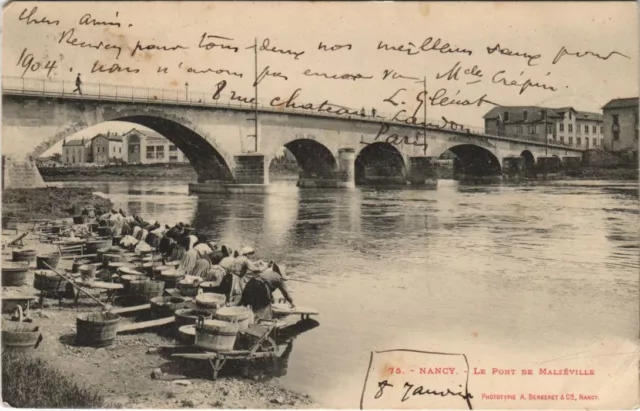 chers amis.
Recevez pour tous deux nos meilleurs vœux pour
1904. nous n'avons pas encore vu Mme Crépin.
L. Glénat
8 rue Chateau Landon
Paris
75. - NANCY. - LE PONT DE MALZÉVILLE
8 Janvier
PHOTOTYPIE A. BERGERET & CIE, NANCY.